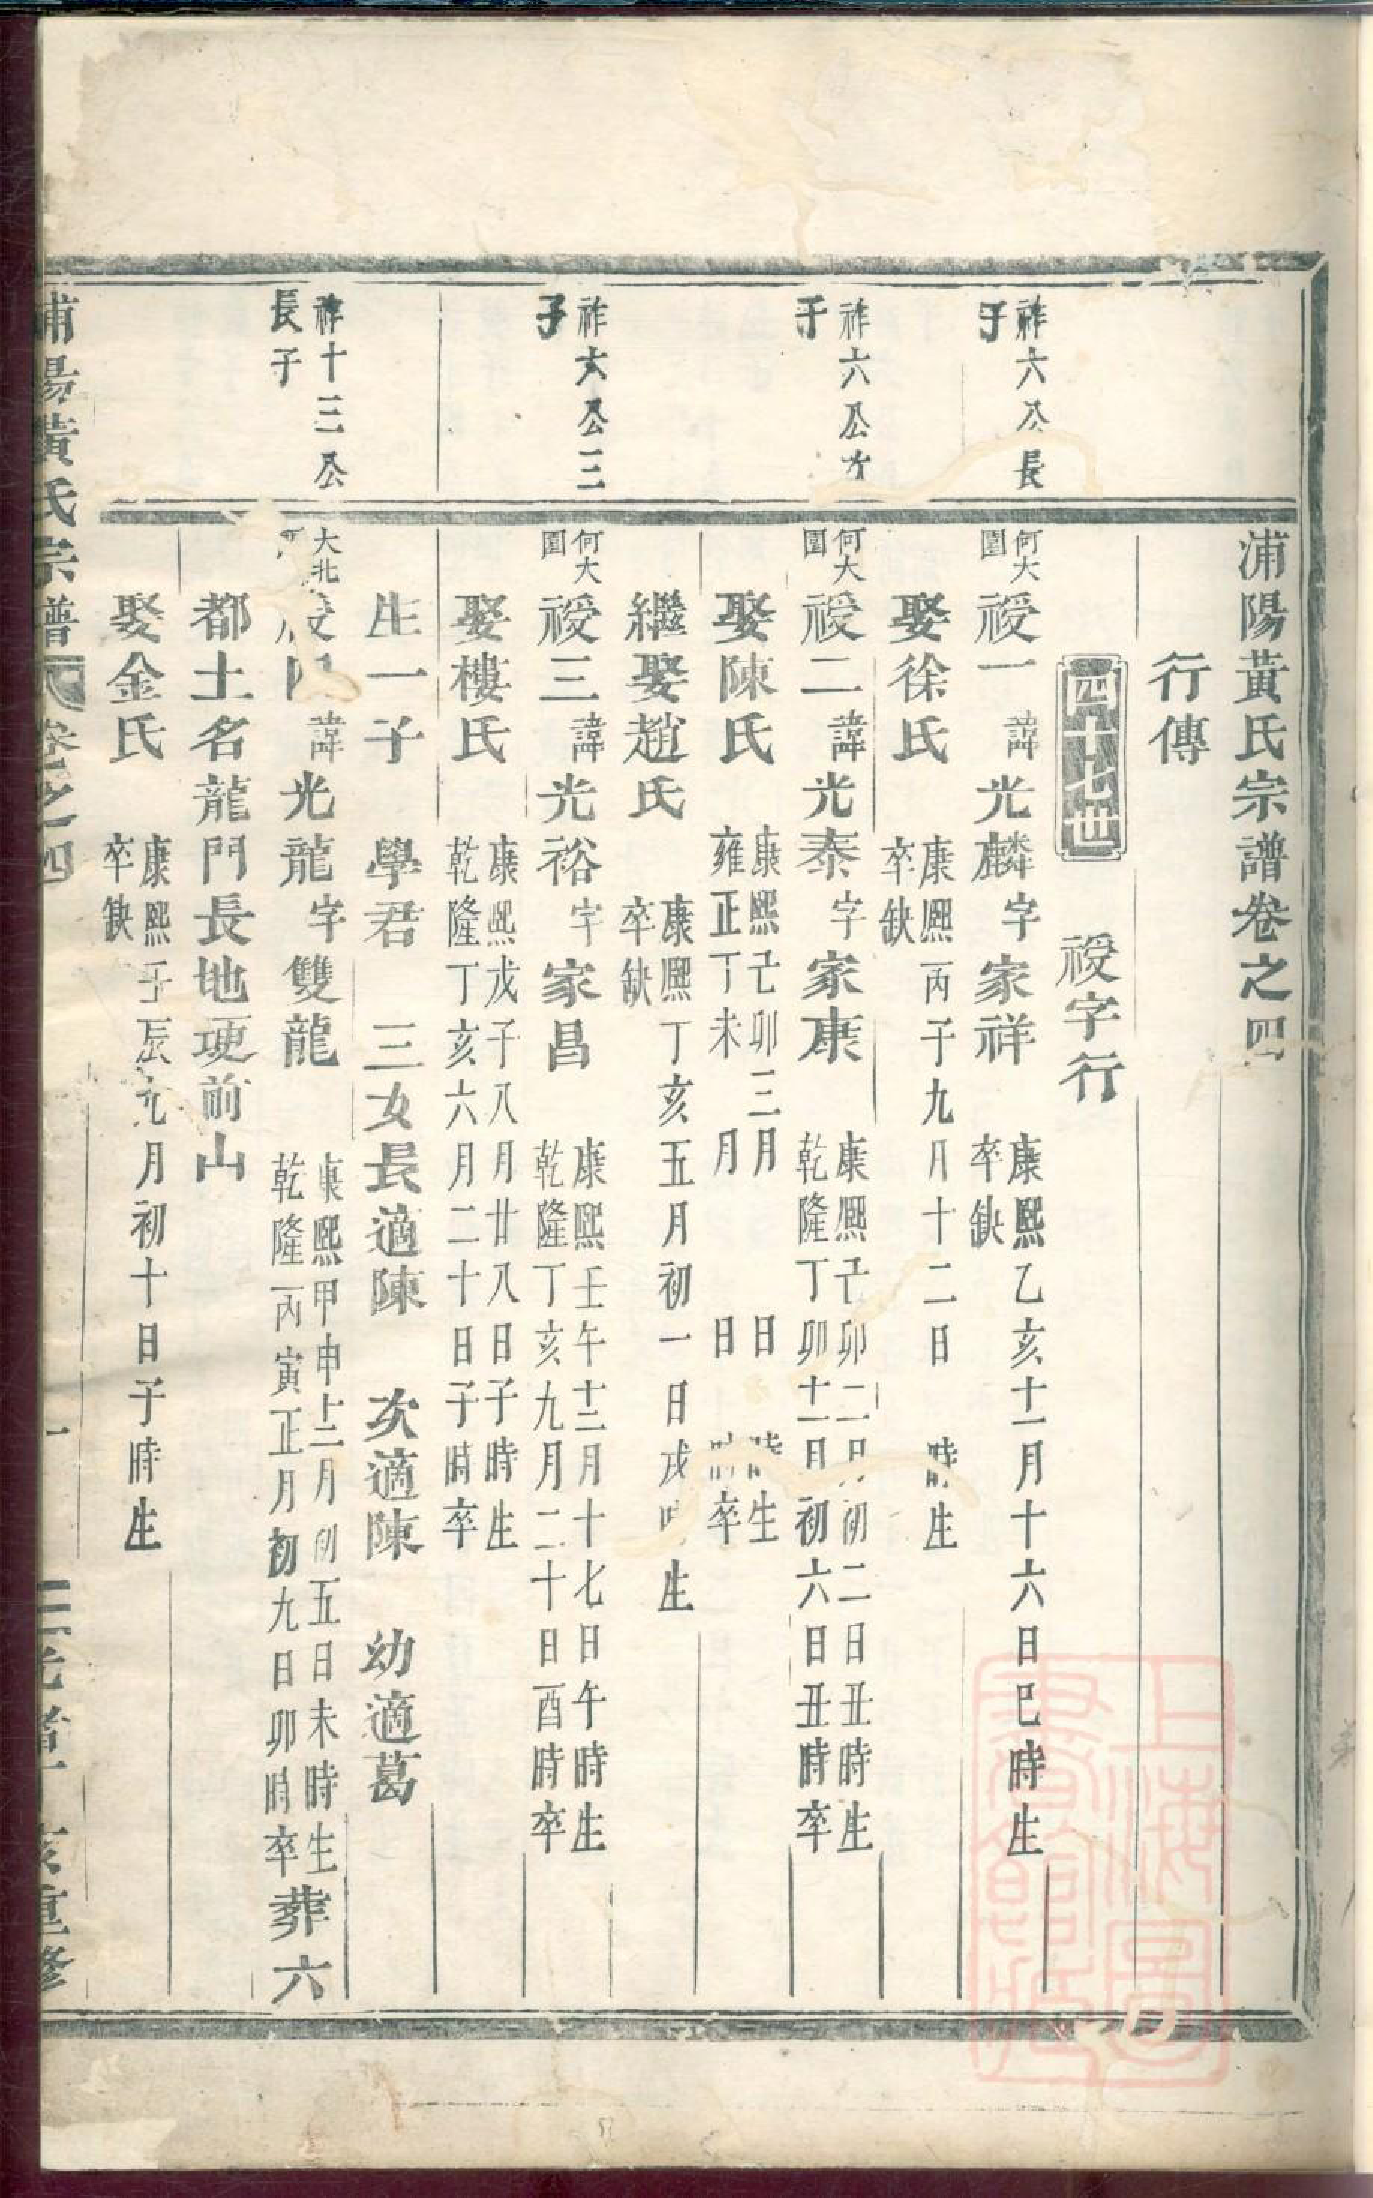 浦陽黃氏宗譜卷之四
行傳
四十七世 祾字行
祚六公長
子
何大
園
祾一諱光麟字家祥
康熙乙亥十一月十六日巳時生
卒缺
娶徐氏
康熙丙子九月十二日 時生
卒缺
祚六公次
子
何大
園
祾二諱光泰字家康
康熙己卯二月初二日丑時生
乾隆丁卯十一月初六日丑時卒
娶陳氏
康熙己卯三月 日 時生
雍正丁未 月 日 時卒
繼娶趙氏
康熙丁亥五月初一日戌時生
卒缺
祚六公三
子
何大
園
祾三諱光裕字家昌
康熙壬午十二月十七日午時生
乾隆丁亥九月二十日酉時卒
娶樓氏
康熙戊子八月廿八日子時生
乾隆丁亥六月二十日子時卒
生一子 學君 三女長適陳 次適陳 幼適葛
祚十三公
長子
大北
諱光龍字雙龍
康熙甲申十二月初五日未時生
乾隆丙寅正月初九日卯時卒
葬六
都土名龍門長地硬前山
娶金氏
康熙壬辰九月初十日子時生
卒缺
浦陽黃氏宗譜 卷之四 一 重修
上海圖書館藏